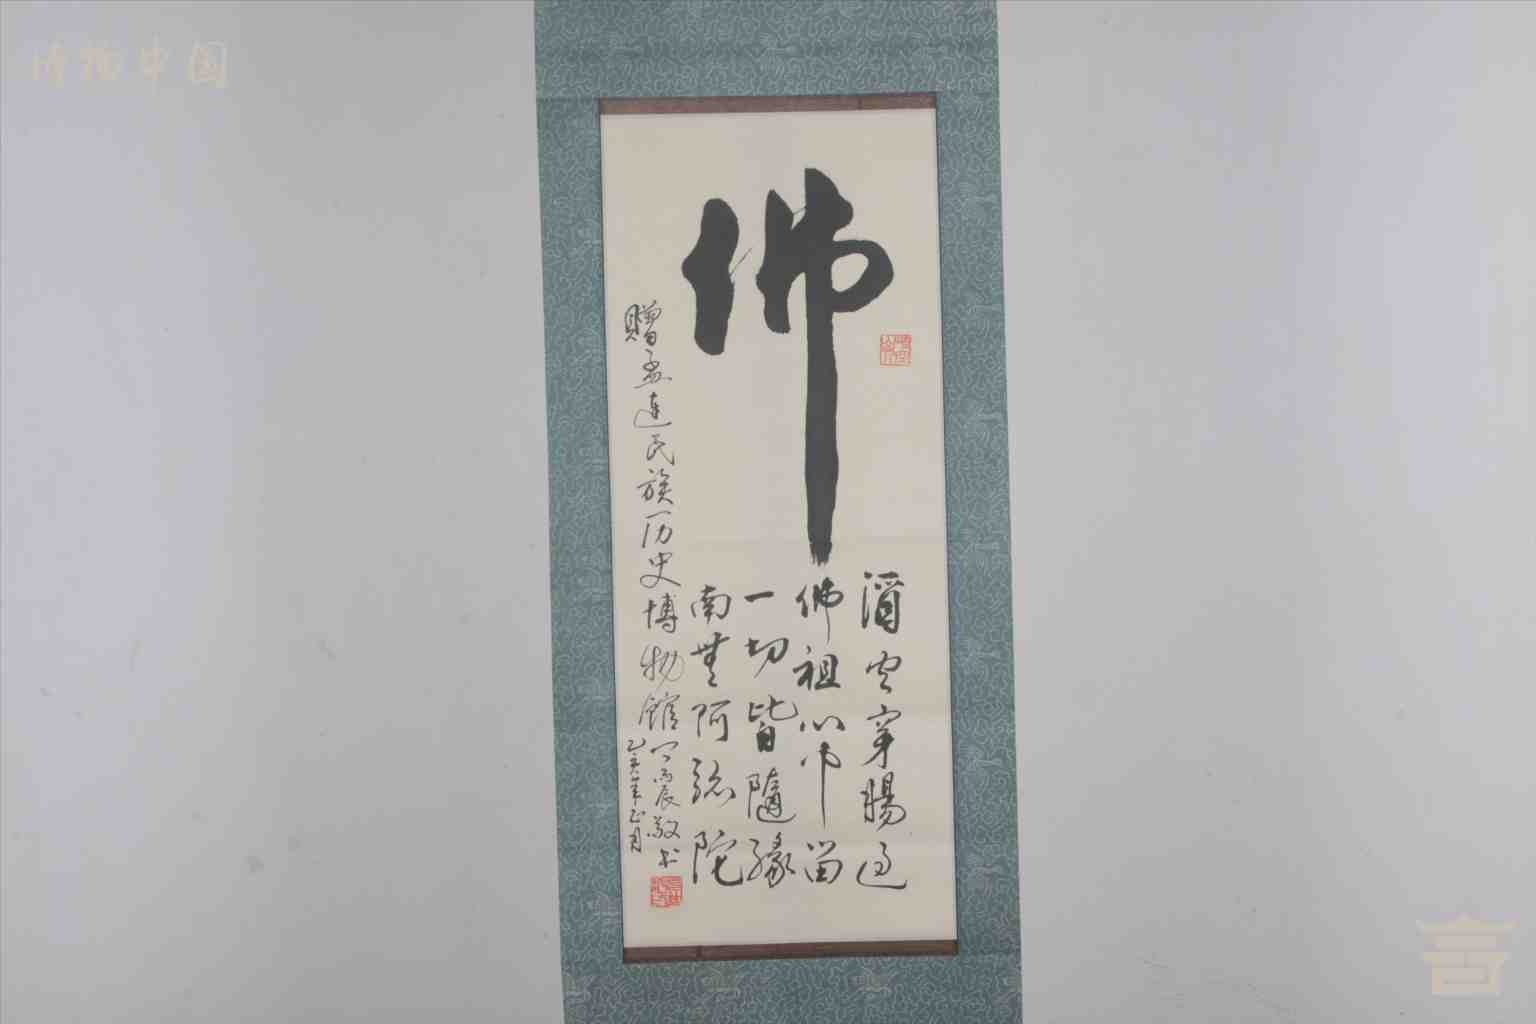 博物中国
佛
酒肉穿腸过
佛祖心中留
一切皆隨緣
南無阿弥陀
贈孟連民族历史博物館
丙辰敬书
乙亥年正月